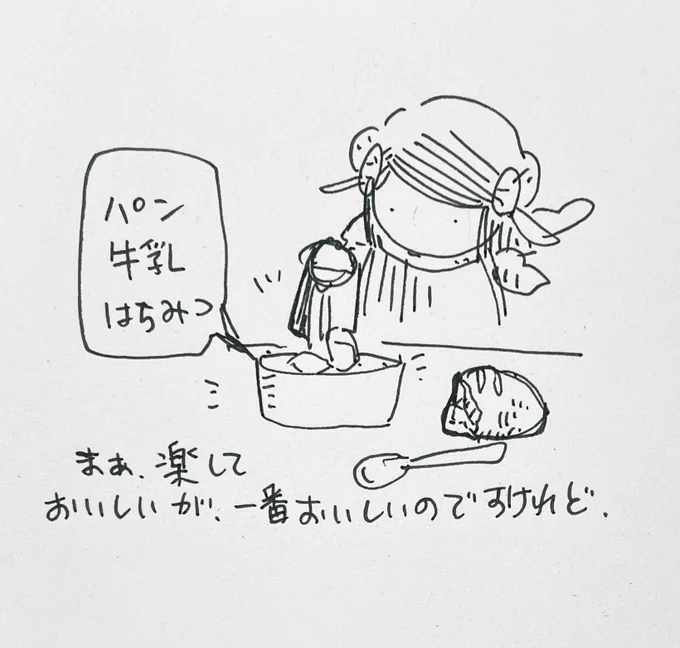 パン
牛乳
はちみつ
まぁ、楽して
おいしいが、一番おいしいのですけれど.